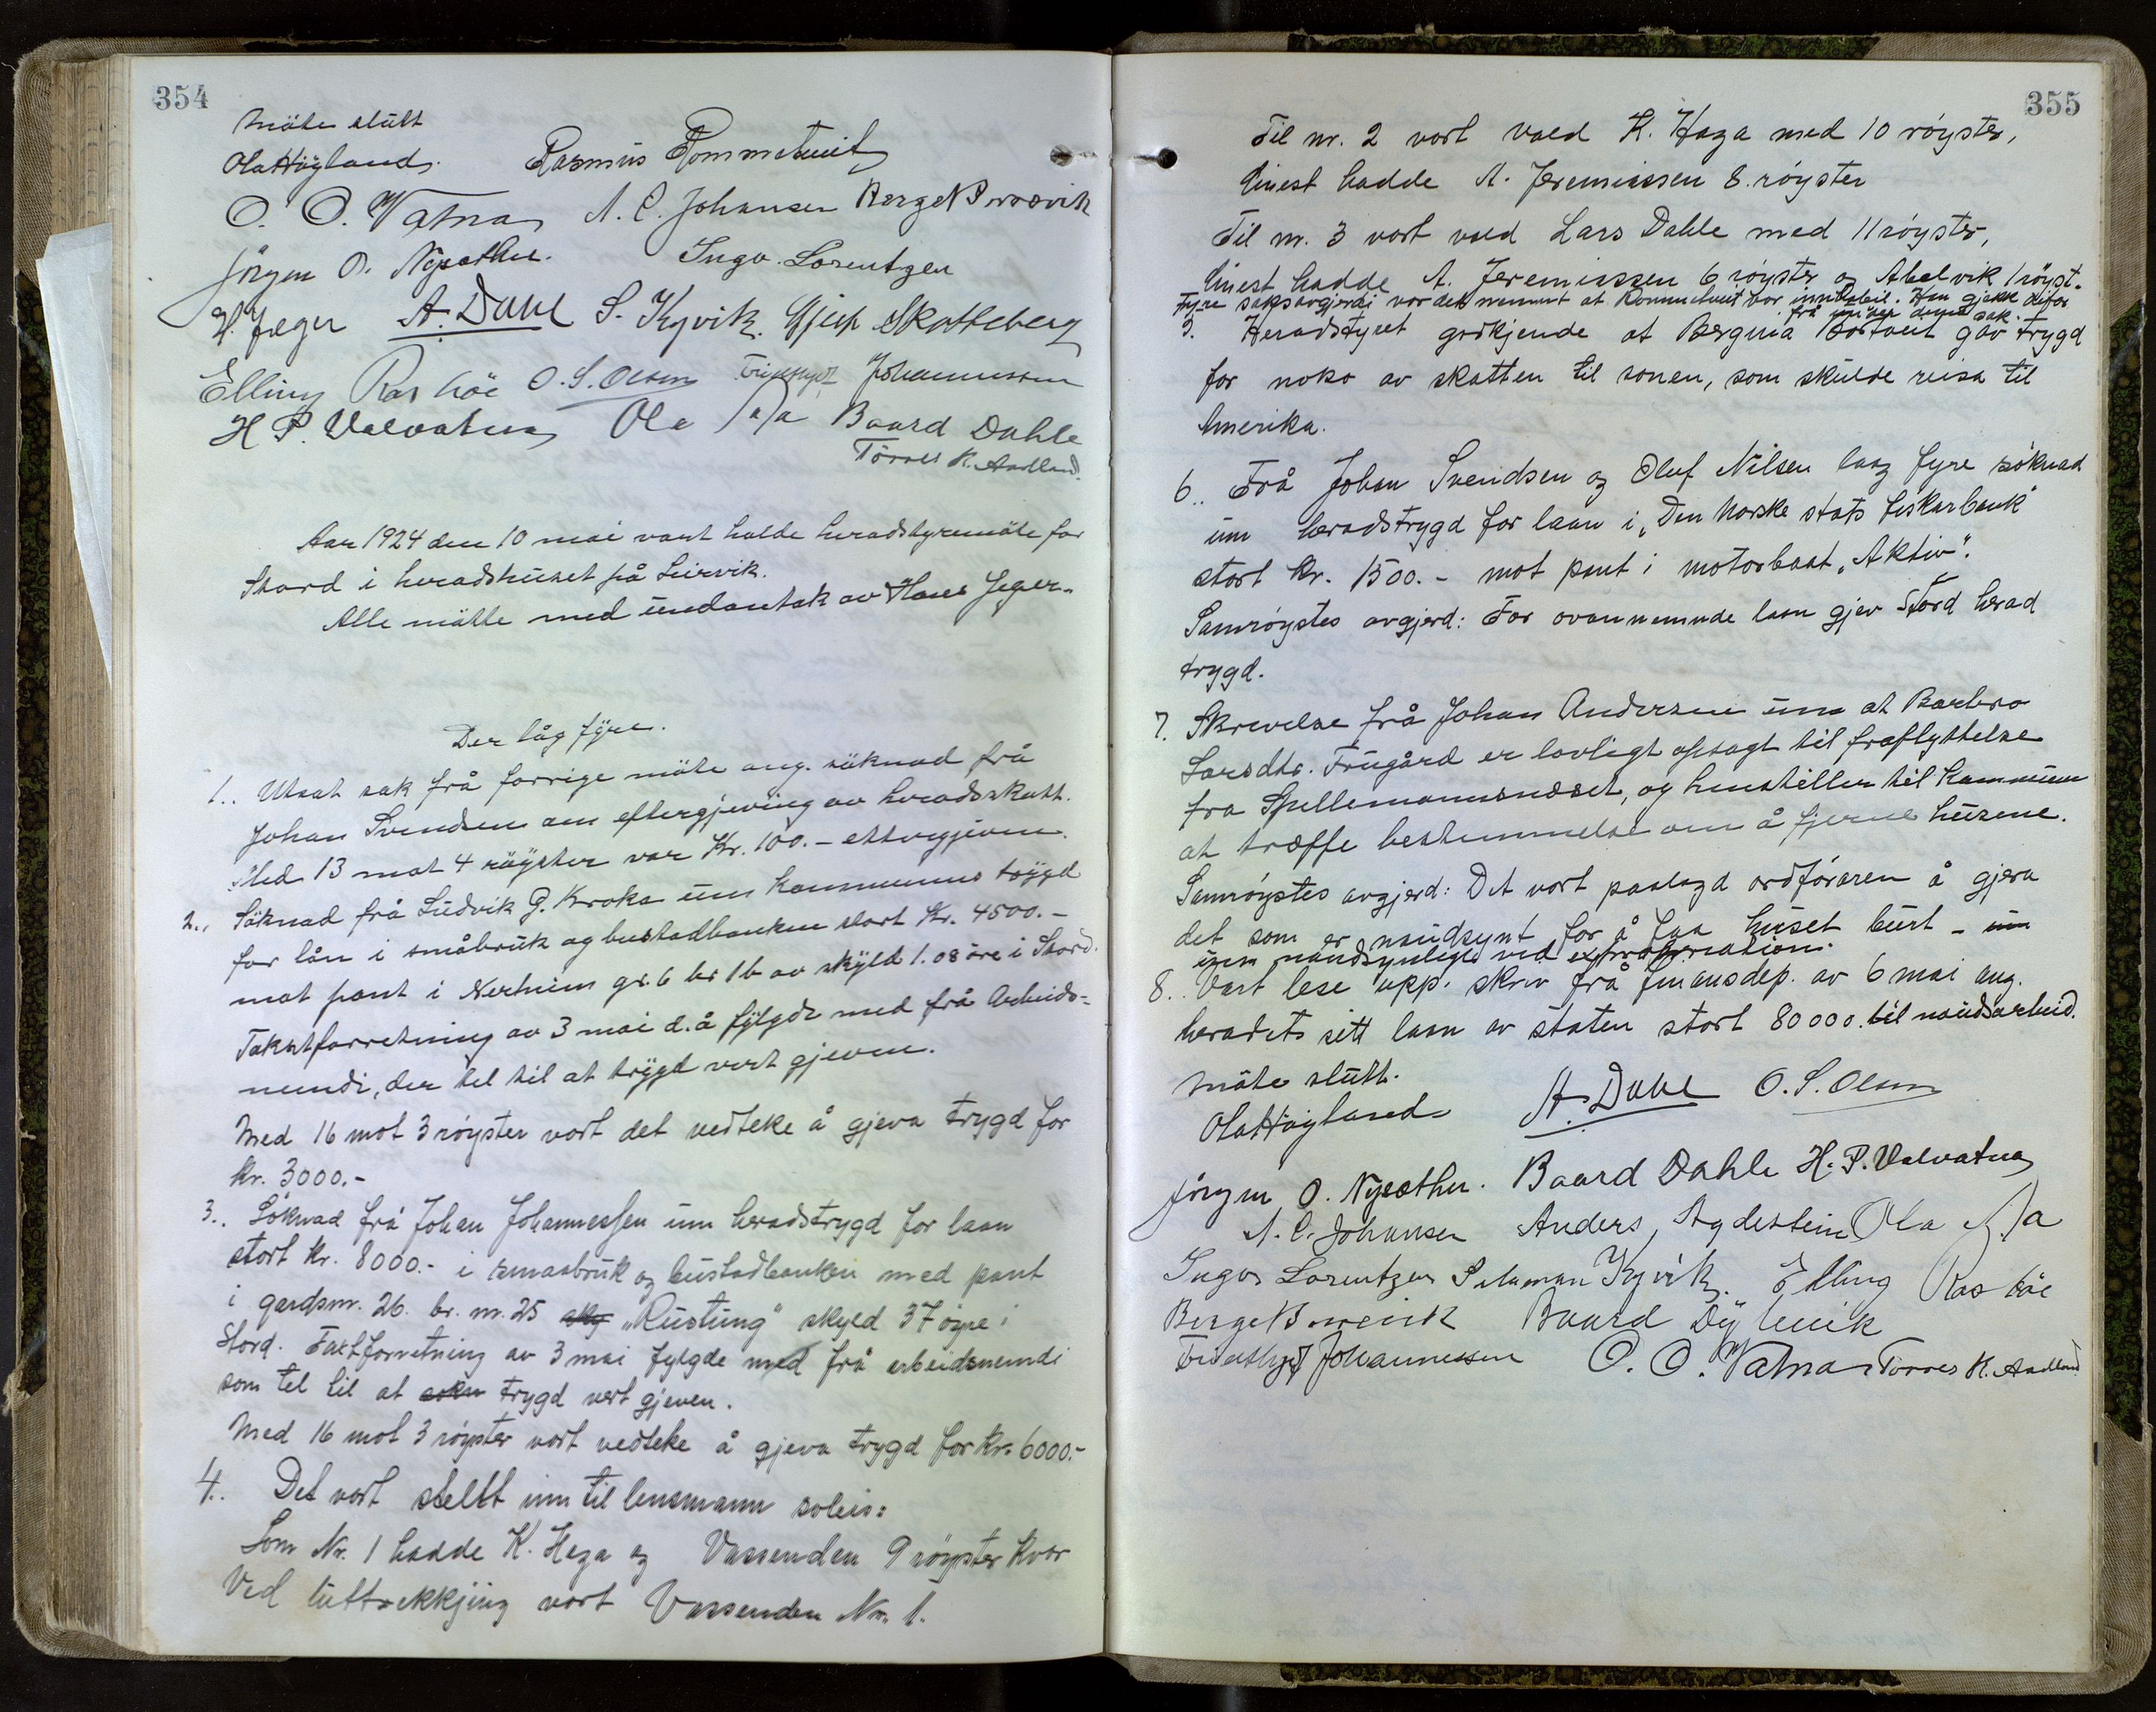 354
Möte slütt
Ola Höyland. Rasmus Rommetveit
O. O. Vatna A. C. Johansen Berge N
Jörgen O. Nysæther. Ingv. Lorentzen
H. Jæger A. Dahl S. Kyvik. Gjert Skotteberg
Elling Ras böe O. S. Olsen Johannessen
H P. Valvatna Ola Aa Baard Dahle
Törres K. Aadland.
Aar 1924 den 10 mai vart halde heradstyremöte for
Stord i heradshuset på Leirvik.
Alle mötte med undantak av Hans Jeger.
Der låg fyre.
1.. Utsat sak frå forrige möte ang. söknad frå
Johan Svendsen om eftergjeving av heradsskatt.
Med 13 mot 4 röyster var Kr. 100.- ettergjeven.
2.. Söknad frå Ludvik G. Kroka um kommunens trygd
for lån i småbruk og bustadbanken stort Kr. 4500.-
mot pant i Nertuim gr. 6 br 1b av skyld 1.08 öre i Stord.
Takstforretning av 3 mai d. å fylgde med frå Arbeids-
nemdi, der tel til at trygd vert gjeven.
Med 16 mot 3 röyster vart det vedteke å gjeva trygd for
kr. 3000.-
3.. Söknad frå Johan Johannessen um heradstrygd for laan
stort kr. 8000.- i smaabruk og bustadbanken med pant
i gardsnr. 26. br. nr. 25 sky „Rustung" skyld 37 öyre i
Stord. Taxtforretning av 3 mai fylgde med frå arbeidsnemdi
som tel til at trygd vert gjeven.
Med 16 mot 3 röyster vart vedteke å gjeva trygd for kr. 6000.-
4.. Det vart stellt inn til lensmann soleis:
Som Nr. 1 hadde K. Haga og Vassenden 9 röyster kvar
Ved luttrekkjing vart Vassenden Nr. 1.
355
Til nr. 2 vart vald K. Haga med 10 röyster,
hinest hadde A. Jeremiassen 8. röyster
Til nr. 3 vart vald Lars Dahle med 11 röyster,
hinest hadde A. Jeremiassen 6 röyster og Abelvik 1 röyst.
Fyre saksavgjerdi var det nemnt at Rommetveit var innhabil. Han gjekk difor
frå under denne sak.
5. Heradstyret godkjende at Bergina Tortveit gav trygd
for noko av skatten til sonen, som skulde reisa til
Amerika.
6.. Frå Johan Svendsen og Oluf Nilsen laag fyre söknad
um heradstrygd for laan i „Den Norske stats fiskarbank"
stort kr. 1500.- mot pant i motorbaat „Aktiv".
Samröystes avgjerd: For ovannemnde laan gjev Stord herad
trygd.
7. Skrivelse frå Johan Andersen um at Barbro
Larsdtr. Frugård er lovligt opsagt til fraflyttelse
fra Spellemannsneset, og henstiller til kommunen
at træffe bestemmelse om å fjerne husene.
Samröystes avgjerd: Det vart paalagd ordföraren å gjera
det som er naudsynt for å faa huset burt – um
um naudsynleg ved expropriation.
8.. Vart lese upp skriv frå finansdep. av 6 mai ang.
heradets sitt laan av staten stort 80000. til naudsarbeid.
Möte slutt.
Ola Höyland A. Dahl O. S. Olsen
Jörgen O. Nysæther. Baard Dahle H. P. Valvatna
A. C. Johansen Anders Agdestein Ola Aa
Ingv. Lorentzen Salamon Kyvik. Elling Ras böe
Berge Baard Dyvik
Johannessen O. O. Vatna Törres K. Aadland